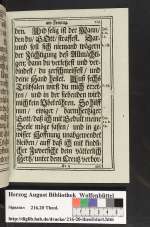 am Sonntag.
den. Und selig ist der Mann,
den du, GOtt, straffest. Dar-
umb soll sich niemand wägern
der Züchtigung des Allmächti-
gen; dann du verletzest und ver-
bindest / du zerschmeissest / und
deine Hand heilet. Auß sechs
Trübsalen wirst du mich erret-
ten / und in der siebenden wird
mich kein Übel rühren. So hilff
nun / ewiger / barmhertziger
Gott / daß ich mit Gedult meine
Seele möge fassen / und in ge-
wisser Hoffnung unabgewendet
bleiben / auff daß ich mit kindli-
cher Zuversicht dein vätterlich
Hertz / unter dem Creutz verbor-
Herzog August Bibliothek Wolfenbüttel
Signatur: 216.20 Theol.
http://diglib.hab.de/drucke/216-20-theol/start.htm